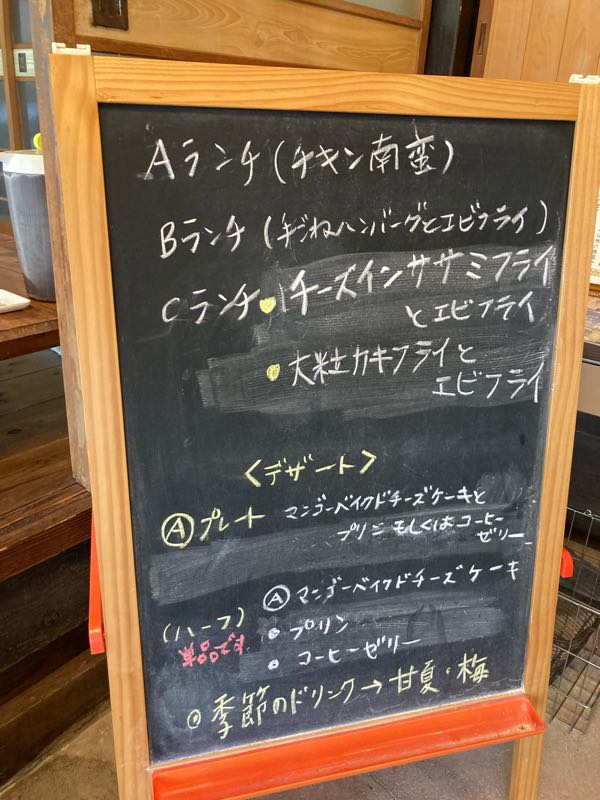 Aランチ(チキン南蛮)
Bランチ(手ごねハンバーグとエビフライ)
Cランチ • チーズインササミフライ
とエビフライ
• 大粒カキフライと
エビフライ
<デザート>
Ⓐプレート マンゴーベイクドチーズケーキと
プリンもしくはコーヒー
ゼリー
Ⓐマンゴーベイクドチーズケーキ
(ハーフ) • プリン
単品です
• コーヒーゼリー
• 季節のドリンク→甘夏・梅